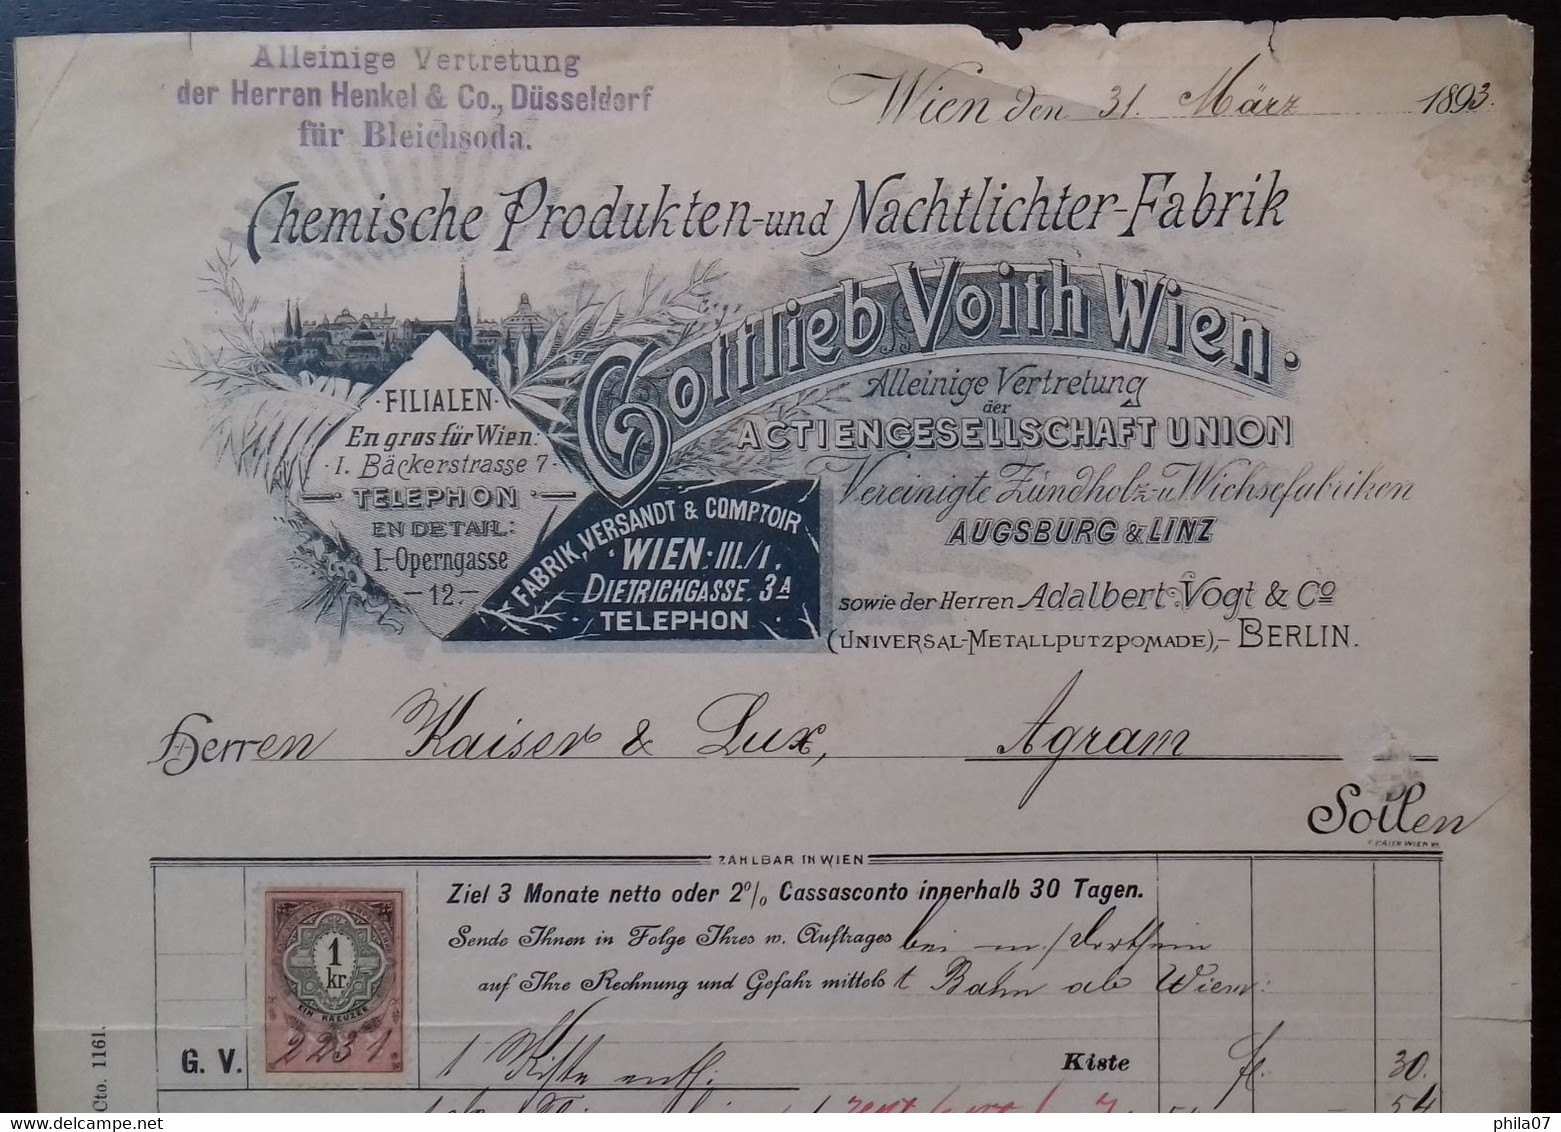 Alleinige Vertretung
der Herren Henkel & Co., Düsseldorf
für Bleichsoda.
Wien den 31. März 1893.
Chemische Produkten-und Nachtlichter-Fabrik
Gottlieb Voith Wien.
Alleinige Vertretung
der
ACTIENGESELLSCHAFT UNION
Vereinigte Zündholz-u. Wichsefabriken
AUGSBURG & LINZ
sowie der Herren Adalbert Vogt & Co
(UNIVERSAL-METALLPUTZPOMADE),- BERLIN.
FILIALEN
En gros für Wien:
I. Bäckerstrasse 7
TELEPHON
EN DETAIL:
I. Operngasse
12.
FABRIK, VERSANDT & COMPTOIR
WIEN: III./1.
DIETRICHGASSE. 3A
TELEPHON
Herren Kaiser & Lux, Agram
Sollen
ZAHLBAR IN WIEN
Ziel 3 Monate netto oder 2% Cassasconto innerhalb 30 Tagen.
Sende Ihnen in Folge Ihres w. Auftrages bei m/
auf Ihre Rechnung und Gefahr mittels Bahn ab Wien:
1
kr.
EIN KREUZER
2231
G. V. 1 Kiste enth: Kiste fl. 30.
54
Cto. 1161.
delcampe.net
phila07